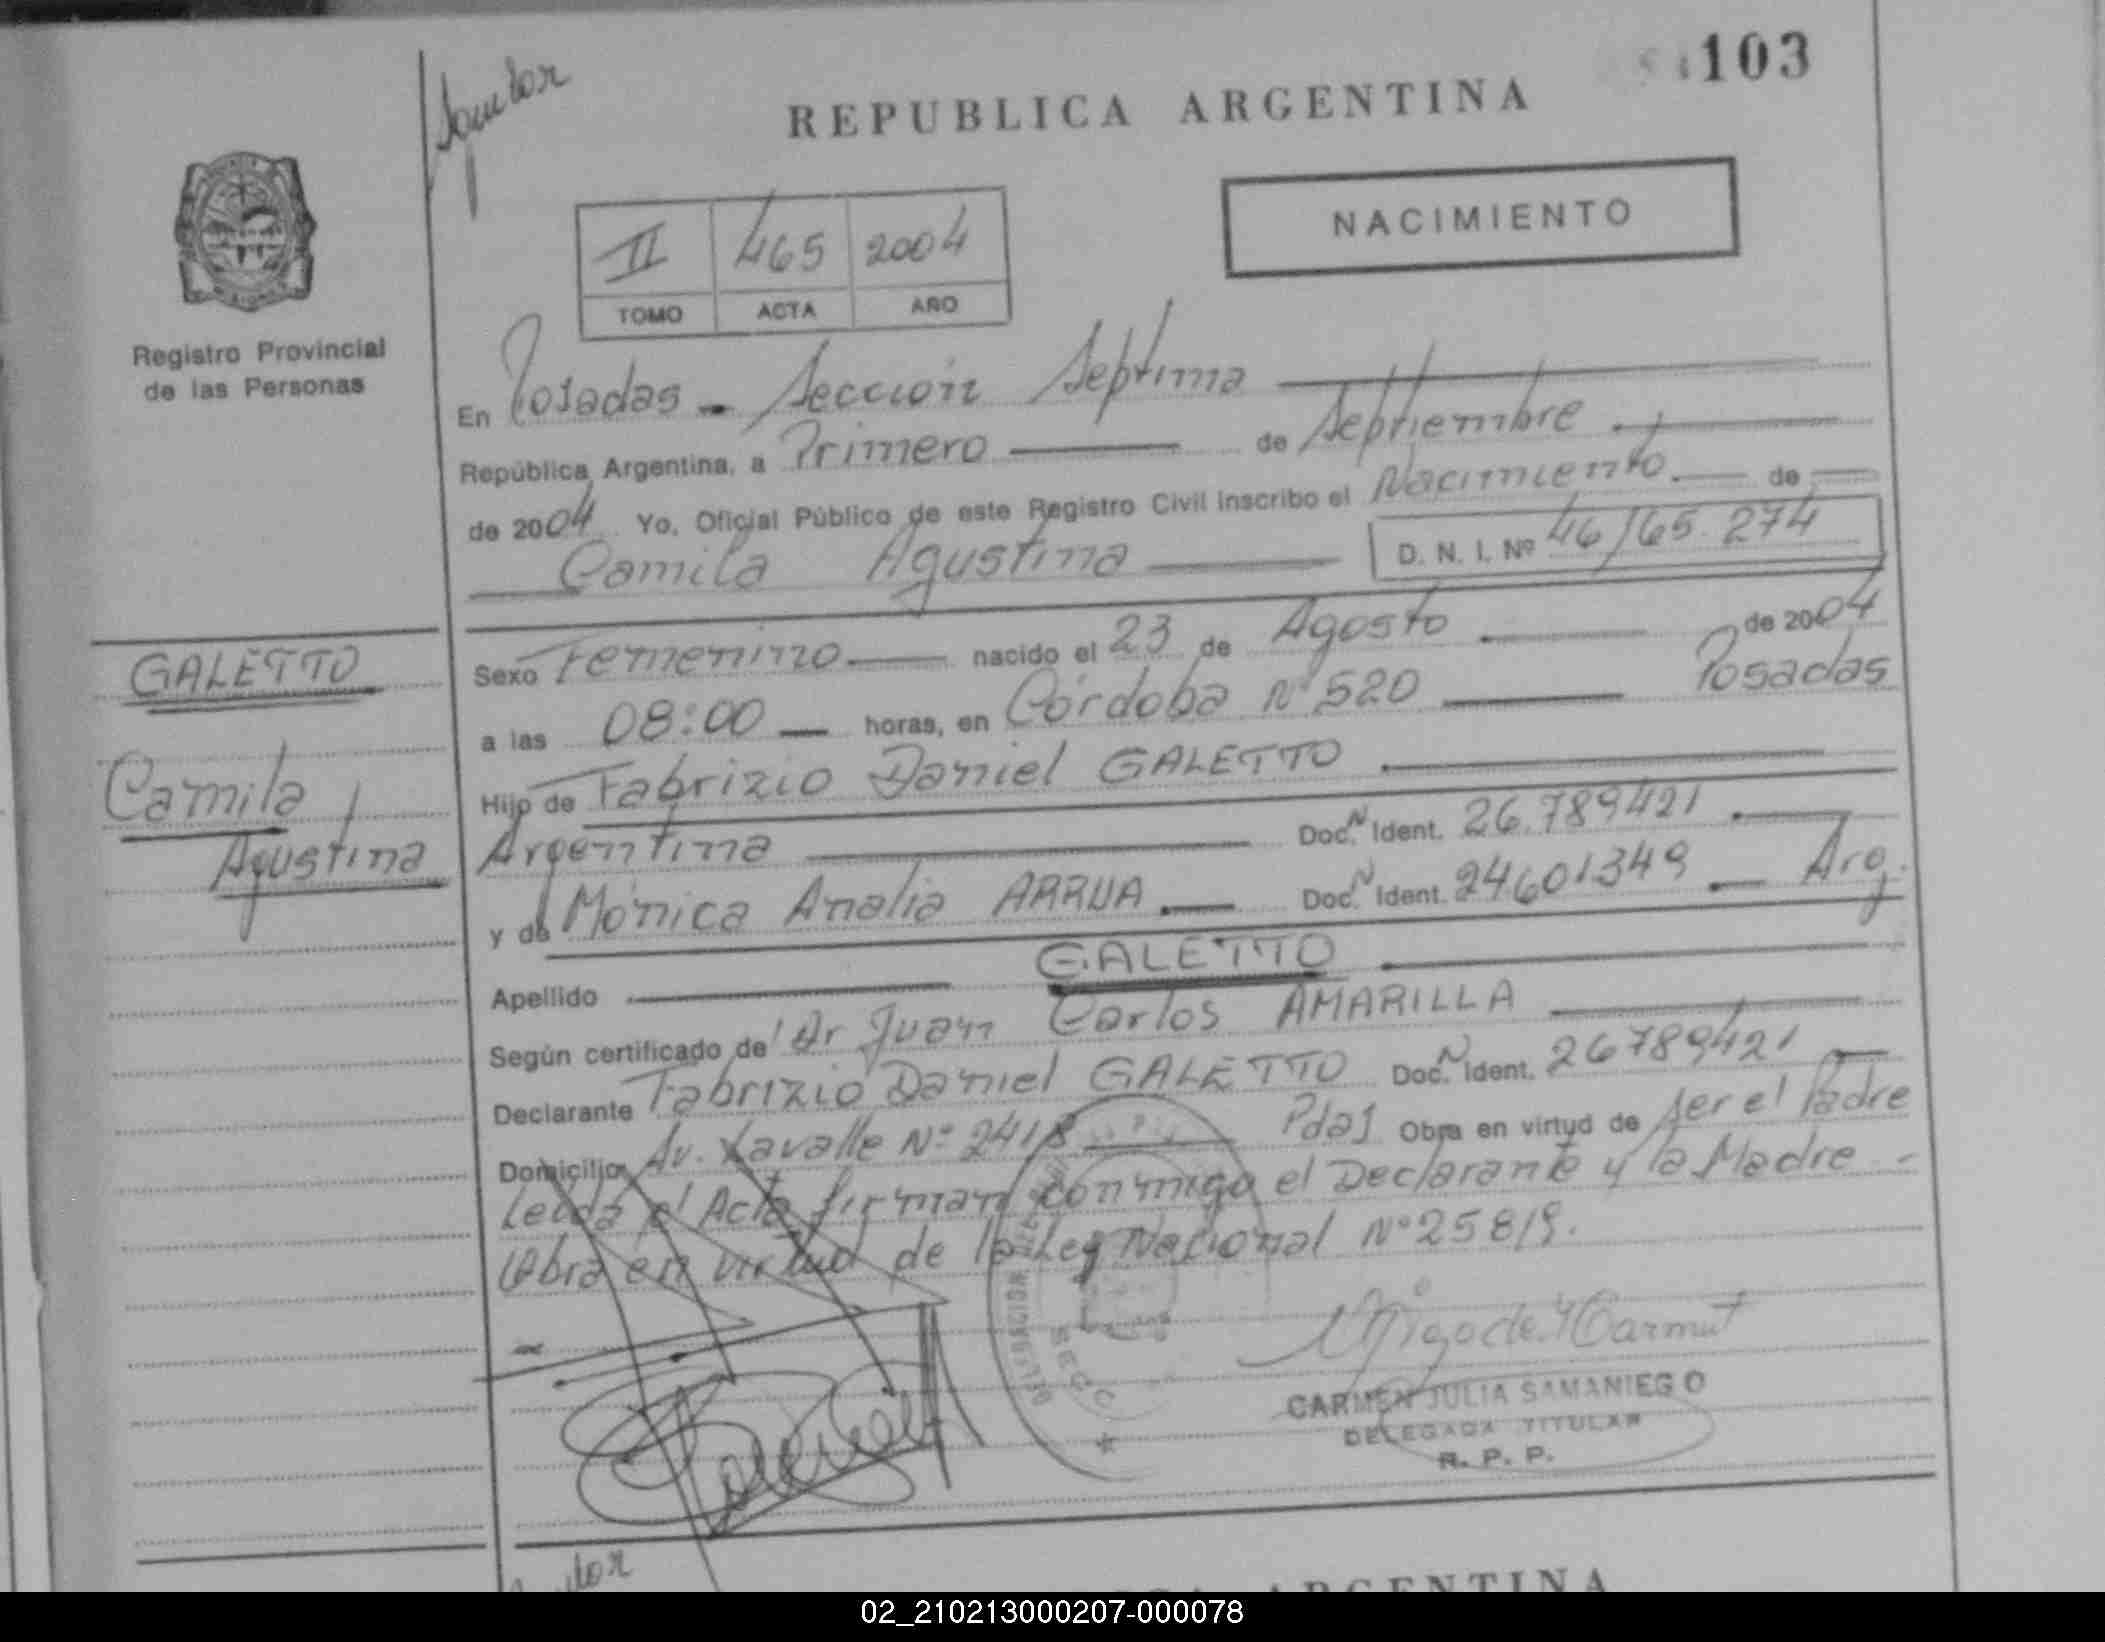 103
REPUBLICA ARGENTINA
NACIMIENTO
II 465 2004
TOMO ACTA AÑO
Registro Provincial
de las Personas
En Posadas - Sección Septima
República Argentina, a Primero de Septiembre
de 2004 Yo, Oficial Público de este Registro Civil inscribo el Nacimiento de
Camila Agustina D. N. I. Nº 46/65.274
GALETTO
Camila
Agustina
Sexo Femenino nacido el 23 de Agosto de 2004
a las 08:00 horas, en Córdoba Nº 520 Posadas
Hijo de Fabrizio Daniel GALETTO
Argentina Doc. N Ident. 26.789421
y de Mónica Analia ARRUA Doc. N Ident. 24601349 Arg.
Apellido GALETTO
Según certificado de Dr Juan Carlos AMARILLA
Declarante Fabrizio Daniel GALETTO Doc. N Ident. 26789421
Domicilio Av. Lavalle Nº 2418 Pdas Obra en virtud de ser el Padre
Leida el Acta firman conmigo el Declarante y la Madre
Obra en virtud de la Ley Nacional Nº 25819.
CARMEN JULIA SAMANIEGO
DELEGADA TITULAR
R. P. P.
ARGENTINA
02_210213000207-000078